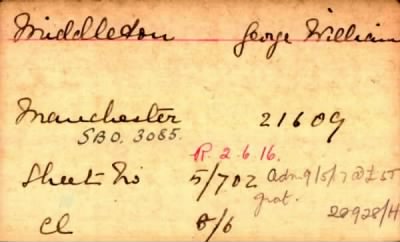 Middleton George William
Manchester 21609
SBO. 3085.
R. 2.6.16.
Sheet No 5/702 Adm 9/5/17 @ £5
grat.
Cl 8/6 22928/H